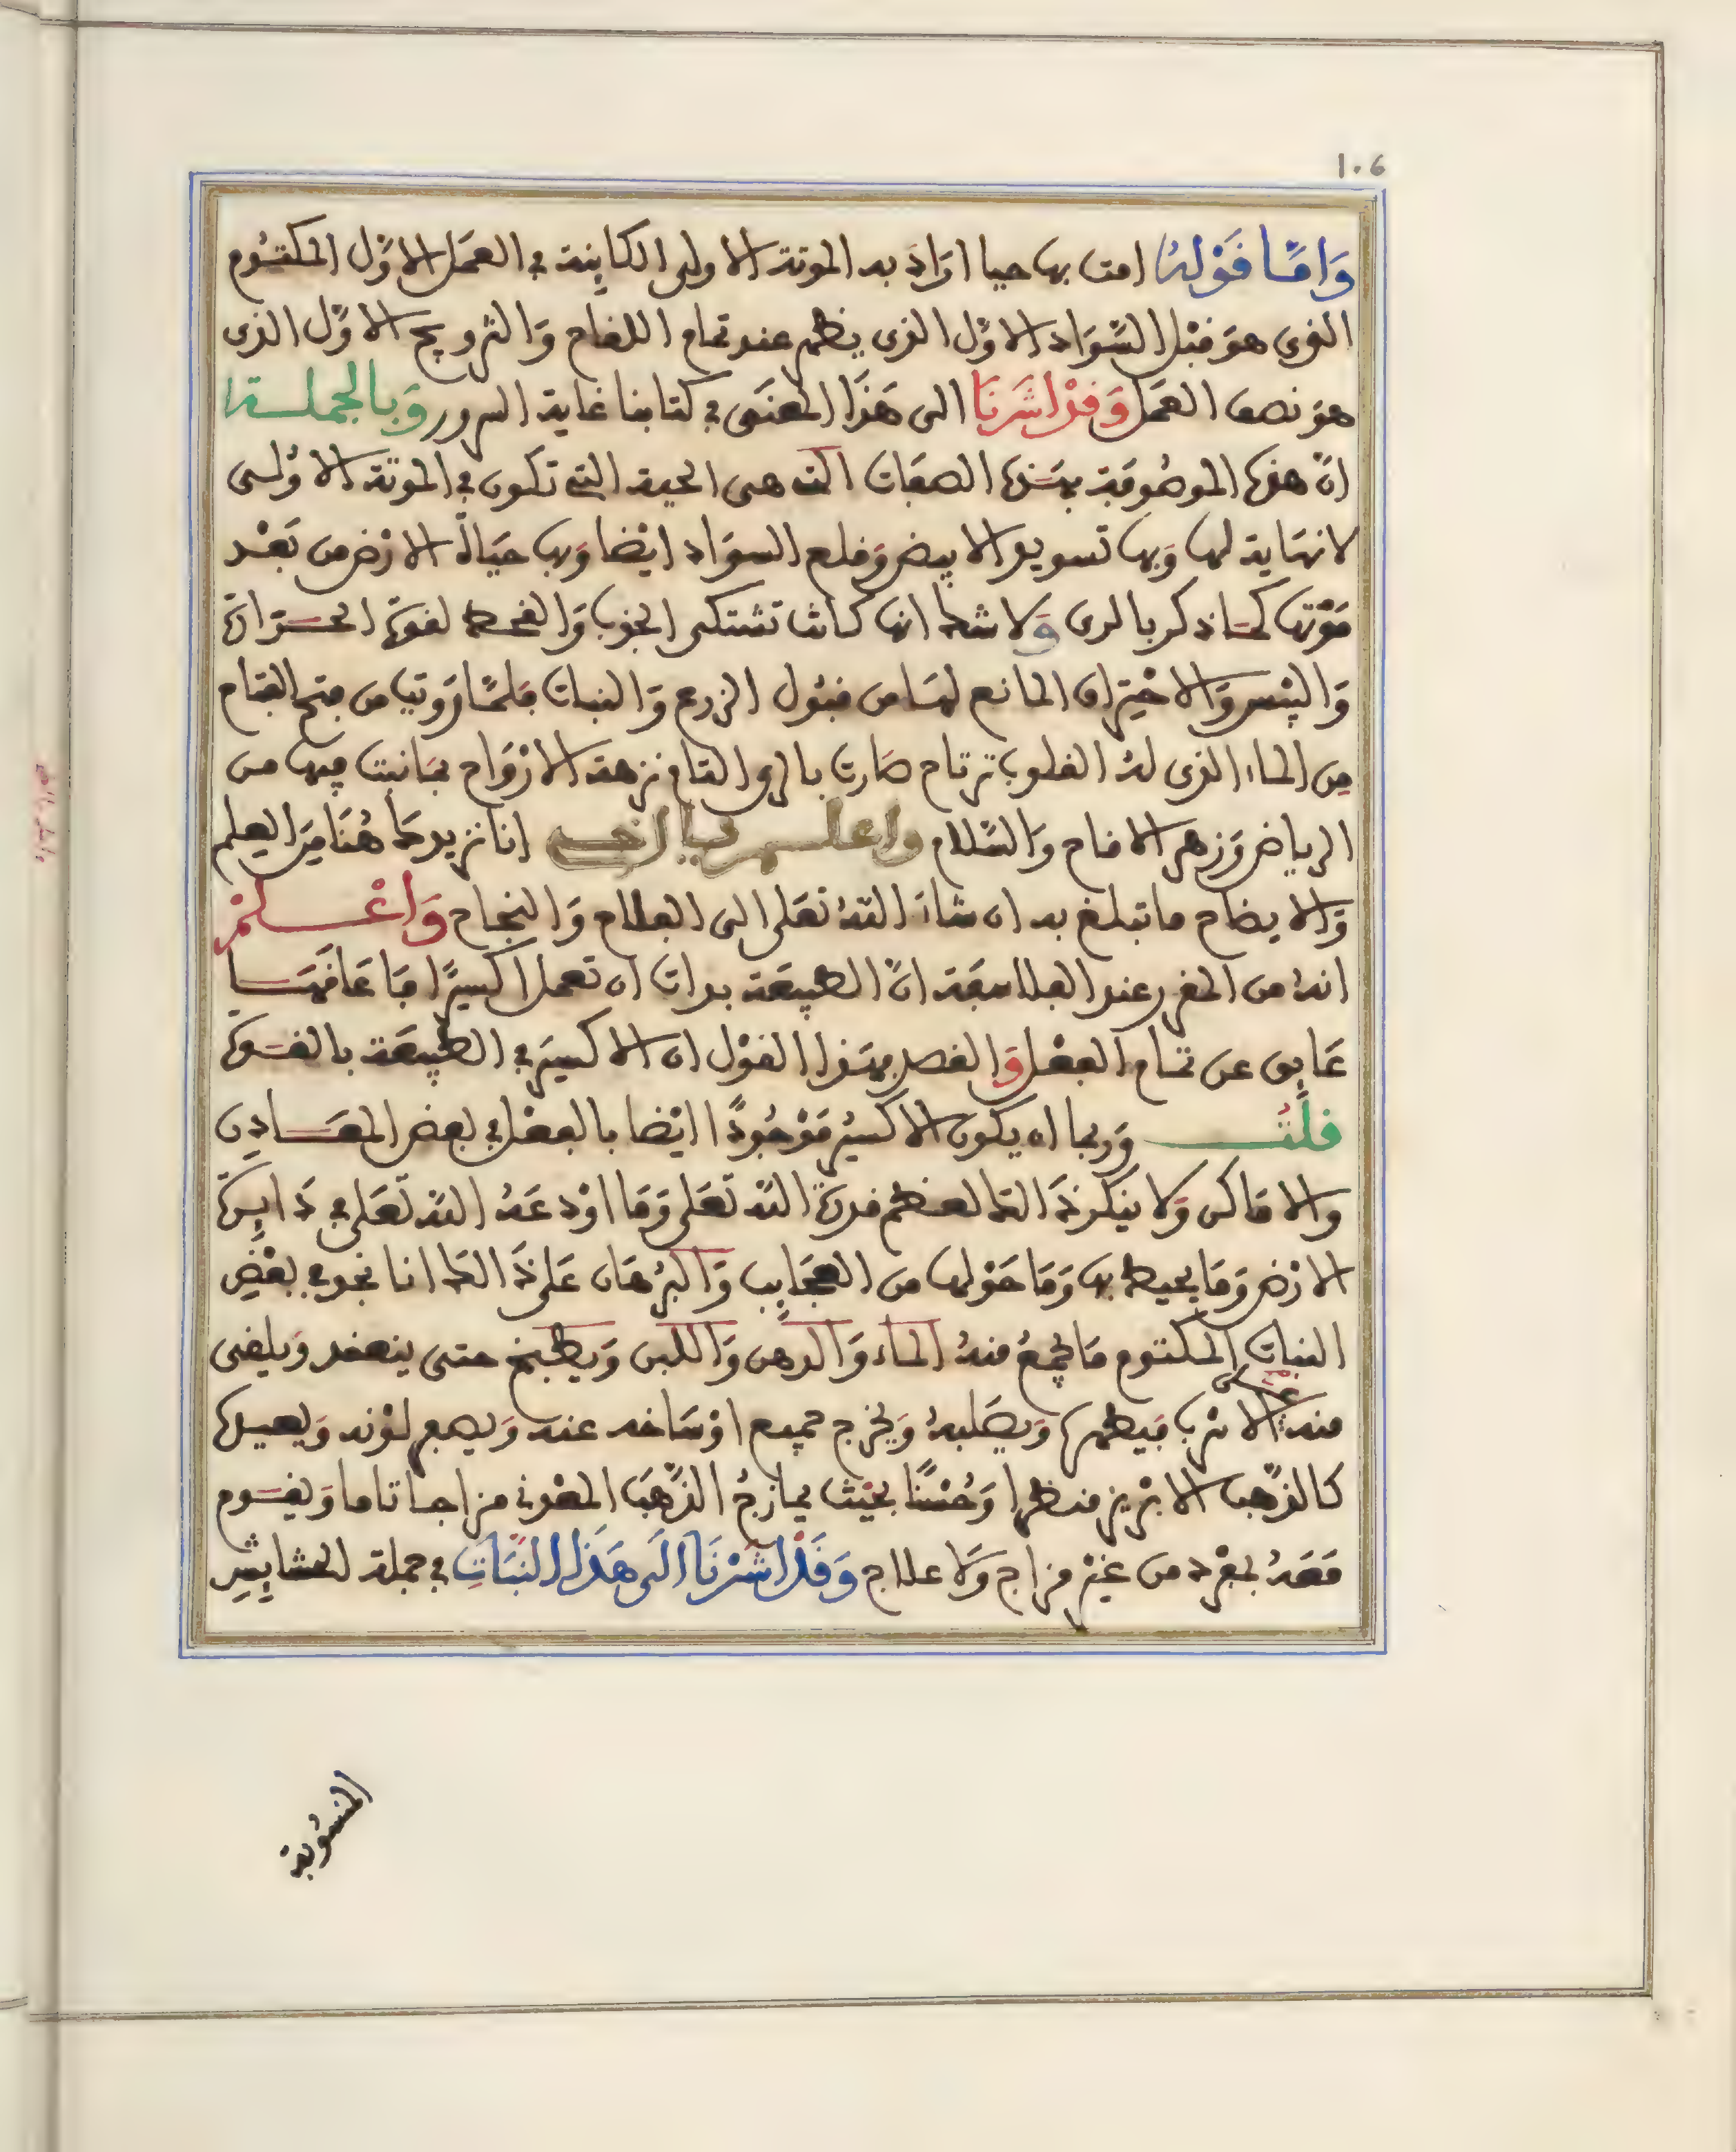 106
وَامَّا قَوْلهُ امت بها حيا ارَادَ به الموتة الاولى الكاينة في العمَل الاوَّل المكتُوم
الذي هوَ قبْل السَّوَاد الاوَّل الذي يظهر عند تمام اللقاح وَالتزويج الاوَّل الذى
هوَ نصف العمَل وَقدْ اشَرنَا الى هَذَا المعنَى في كتابنا غاية السرور وَبالجملة
انّ هذه الموصُوفَة بهَذه الصفات التي هى الحية التي تكون في الموتَة الاوُلى
لا نهَاية لها وَبها تسويد الابيض وَقلع السوَاد ايْضا وَبها حَيَاة الارْض من بَعْد
مَوْتها كمَا ذكر بالرى وَلا شك انها كانت تشتكى الجذب وَالقحط لقوة الحرَارة
وَاليبْس وَالاحْترَاق المانع لهَا من قبُول الزرع وَالنبات فلمَّا رَويت من فتح الفتاح
مِن الماء الذى لهُ القلوب ترتاح صَارت بالرى التام نزهة الارْوَاح بمَا نبت فيها من
الرياض وَزهر الاقاح وَالسَّلام واعلم يا اخي انا نزيدكَ هُنَا مِنَ العِلم
وَالايضاح ما تبلغ به ان شاءَ اللهُ تعَلى الى الفلاح وَالنجاح وَاعْلمْ
انهُ من المقرر عند الفلاسفَة انَّ الطبيعَة بدات ان تعمل اكسيرًا فَعَاقهَا
عَايق عن تمام الفعْل وَالقصد بهَذا القوْل ان الاكسيرَ في الطبيعَة بالقوة
قلْتُ وَربما ان يكون الاكسيرُ مَوْجُودًا ايْضا بالفعْل في بعض المعَادِن
والامَاكن وَلا ينكر ذَلك لعظم قدرة اللهِ تَعَلى وَمَا اوْدعَهُ اللهُ تَعَلى في دَايِرة
الارْض وَمَا يحيط بها وَمَا حَوْلها من العجَايِب وَالبرْهَان عَلى ذَلك انا نجد في بعْضِ
النبات المكتوم مَا يجْمعُ منهُ الماء وَالدهن وَاللبن وَيطبخ حتى ينعقد وَيلقى
منه عَلى الاسْرب فيَطهره وَيصَلبهُ وَيخرج جميع اوْسَاخه عنه وَيصبغ لوْنه وَيصيره
كالذَّهب الابْريز منظرا وَحُسْنًا بحيْث يمازجُ الذَّهَبَ المعْدني مزاجا تاما وَيقوم
مَعَهُ بمفرده من غيْر مزاج وَلا علاج وَقَدْ اشَرْنَا الَى هَذَا النَّبَاتِ في جملة الحشايِش
المنسُوبة